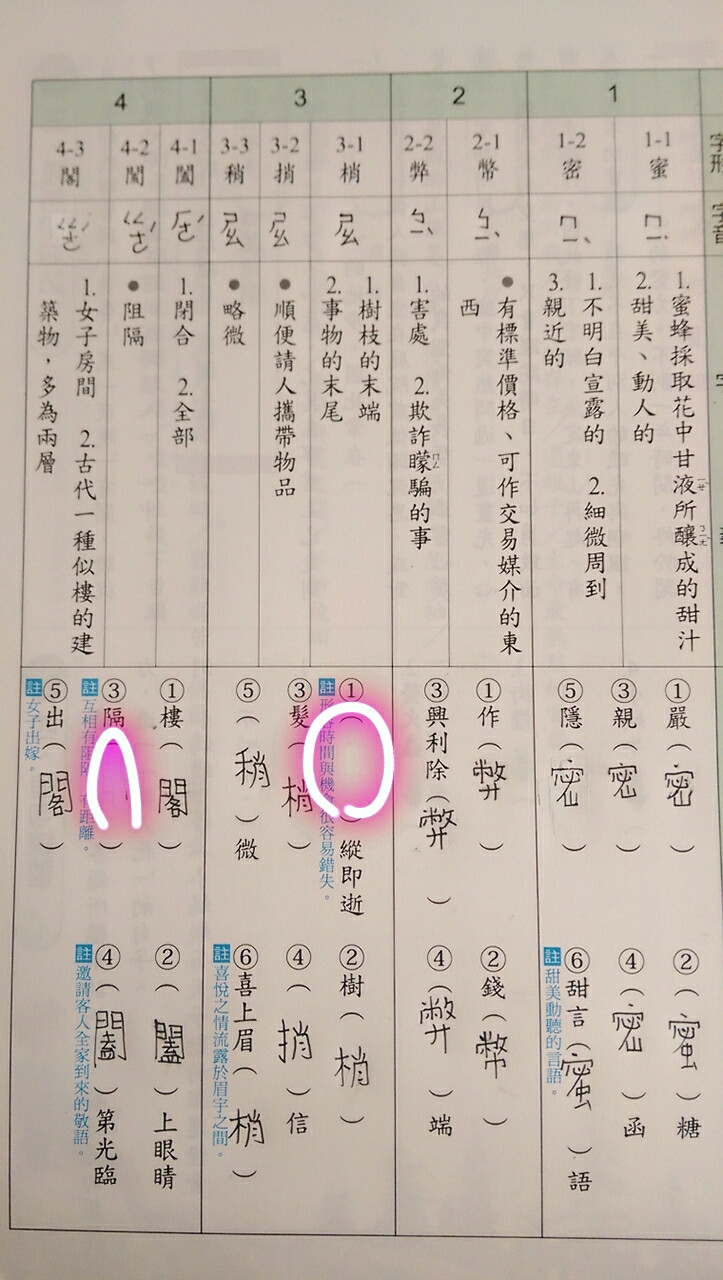 字形
字音
1
1-1
蜜
ㄇㄧˋ
1. 蜜蜂採取花中甘液所釀成的甜汁
2. 甜美、動人的
①嚴(密)
②(蜜)糖
1-2
密
ㄇㄧˋ
1. 不明白宣露的 2. 細微周到
3. 親近的
③親(密)
④(密)函
⑤隱(密)
⑥甜言(蜜)語
註 甜美動聽的言語。
2
2-1
幣
ㄅㄧˋ
●有標準價格、可作交易媒介的東
西
①作(弊)
②錢(幣)
2-2
弊
ㄅㄧˋ
1. 害處 2. 欺詐矇騙的事
③興利除(弊)
④(弊)端
3
3-1
梢
ㄕㄠ
1. 樹枝的末端
2. 事物的末尾
①( )縱即逝
註 形容時間與機會很容易錯失。
②樹(梢)
3-2
捎
ㄕㄠ
●順便請人攜帶物品
③髮(梢)
④(捎)信
3-3
稍
ㄕㄠ
●略微
⑤(稍)微
⑥喜上眉(梢)
註 喜悅之情流露於眉宇之間。
4
4-1
闔
ㄏㄜˊ
1. 閉合 2. 全部
①樓(閣)
②(闔)上眼睛
4-2
●阻隔
③隔( )
註 互相有阻隔 有距離。
④(闔)第光臨
註 邀請客人全家到來的敬語。
4-3
閣
1. 女子房間 2. 古代一種似樓的建
築物，多為兩層
⑤出(閣)
註 女子出嫁。